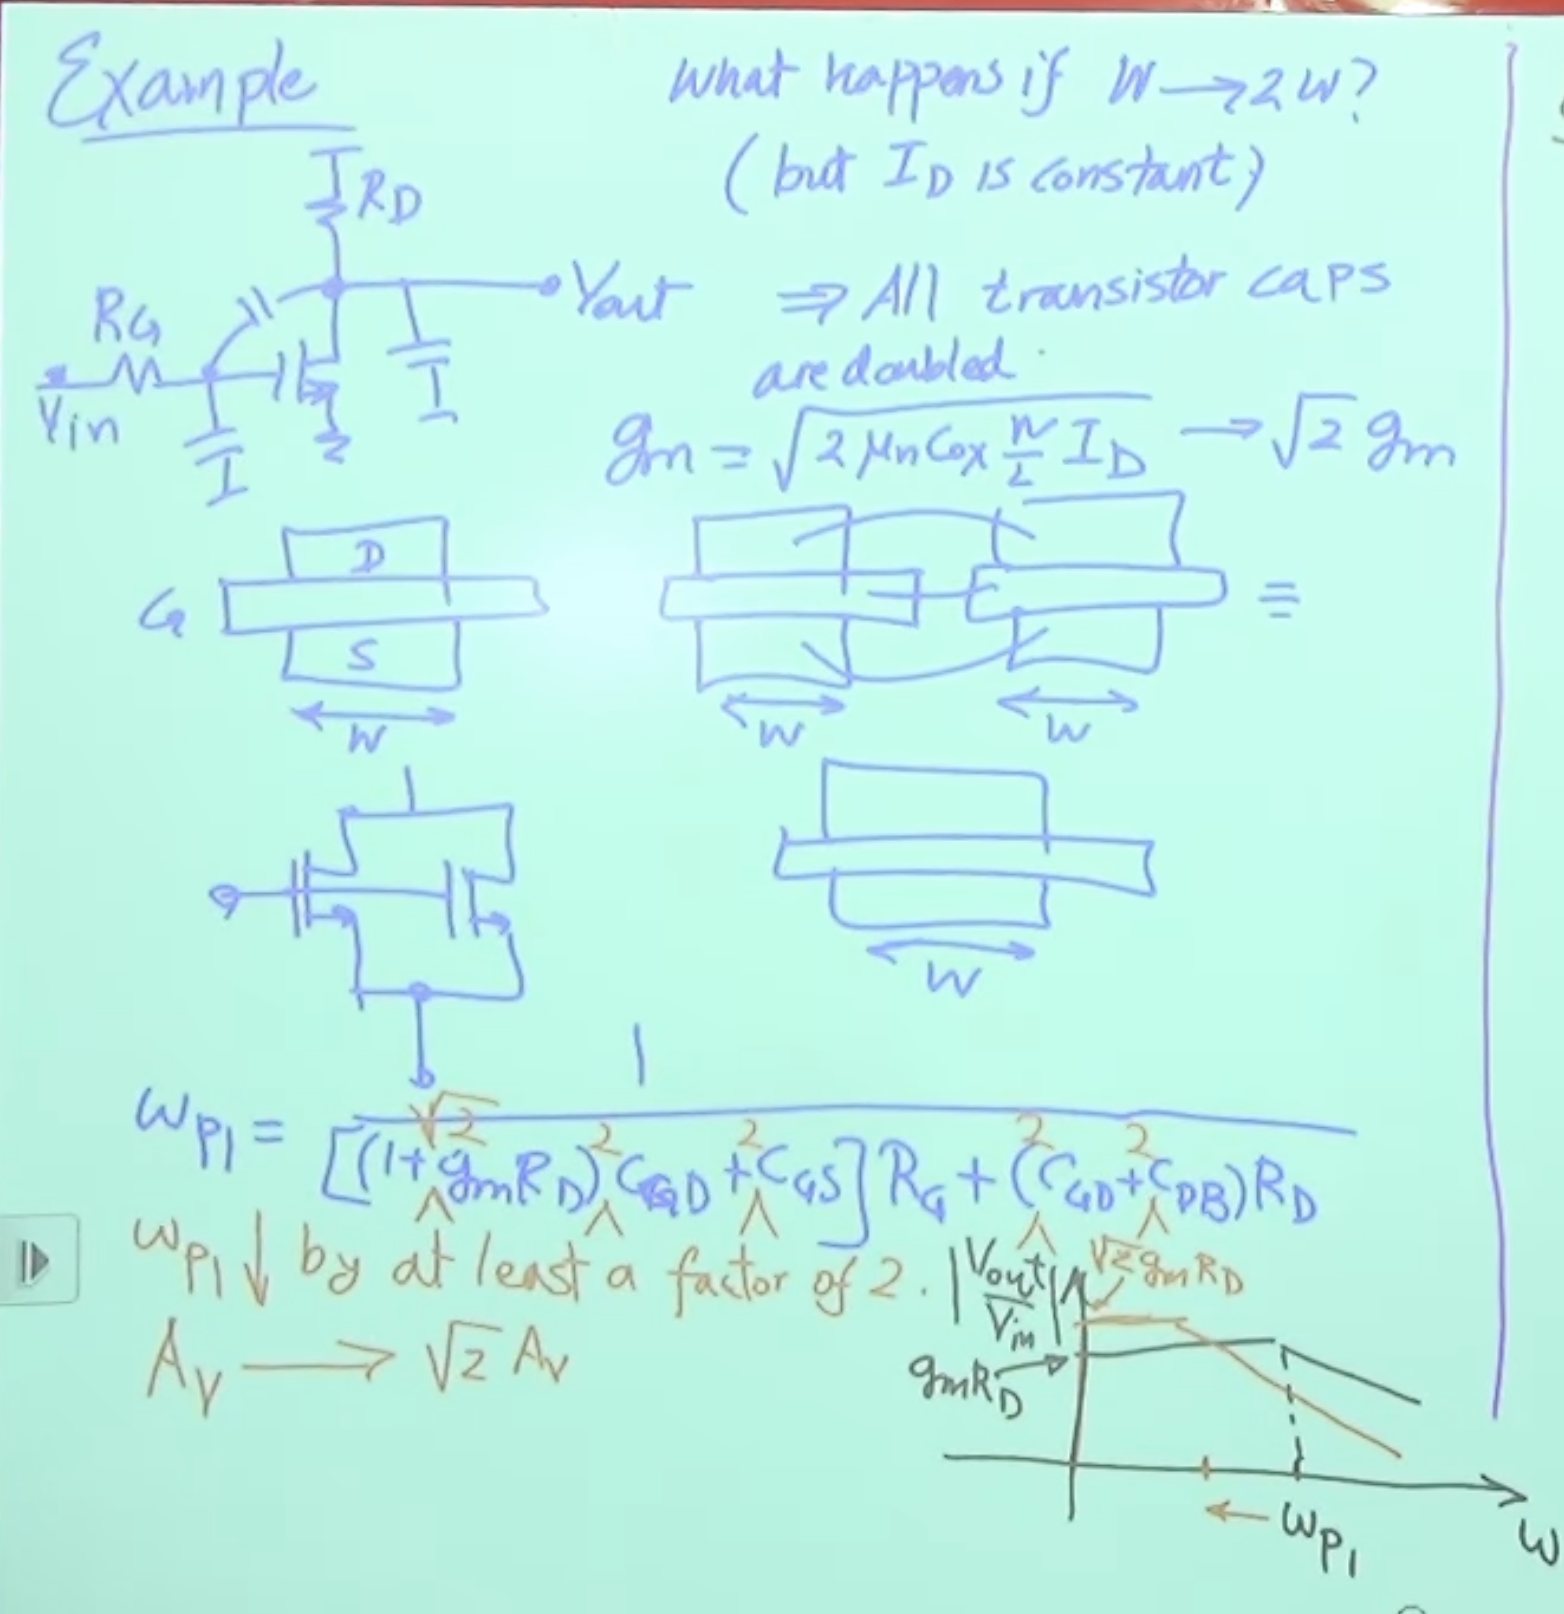 Example
What happens if W → 2W?
(but I_D is constant)
R_D
Vout
⇒ All transistor caps
are doubled.
R_G
Vin
gm = √(2 μn Cox W/L I_D) → √2 gm
D
G
S
W
W
W
≡
W
ω_P1 = 1 / [(1 + √2 gm R_D) 2 C_GD + 2 C_GS] R_G + (2 C_GD + 2 C_DB) R_D
ω_P1 ↓ by at least a factor of 2.
A_V → √2 A_V
|Vout/Vin|
√2 gm R_D
gm R_D
← ω_P1
ω